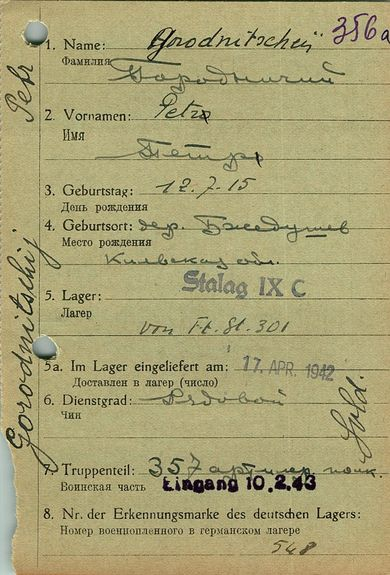 356a
1. Name: Gorodnitschij
Фамилия Городничий
2. Vornamen: Petr
Имя
Петр
3. Geburtstag: 12.7.15
День рождения
4. Geburtsort: дер.
Место рождения
Киевская обл.
5. Lager: Stalag IX C
Лагерь
von Ft. St. 301
5a. Im Lager eingeliefert am: 17. APR. 1942
Доставлен в лагер (число)
6. Dienstgrad: Рядовой
Чин
Sold.
7. Truppenteil: 357 артилер. полк.
Воинская часть Eingang 10.2.43
8. Nr. der Erkennungsmarke des deutschen Lagers:
Номер военнопленного в германском лагере
548
Gorodnitschij Petr